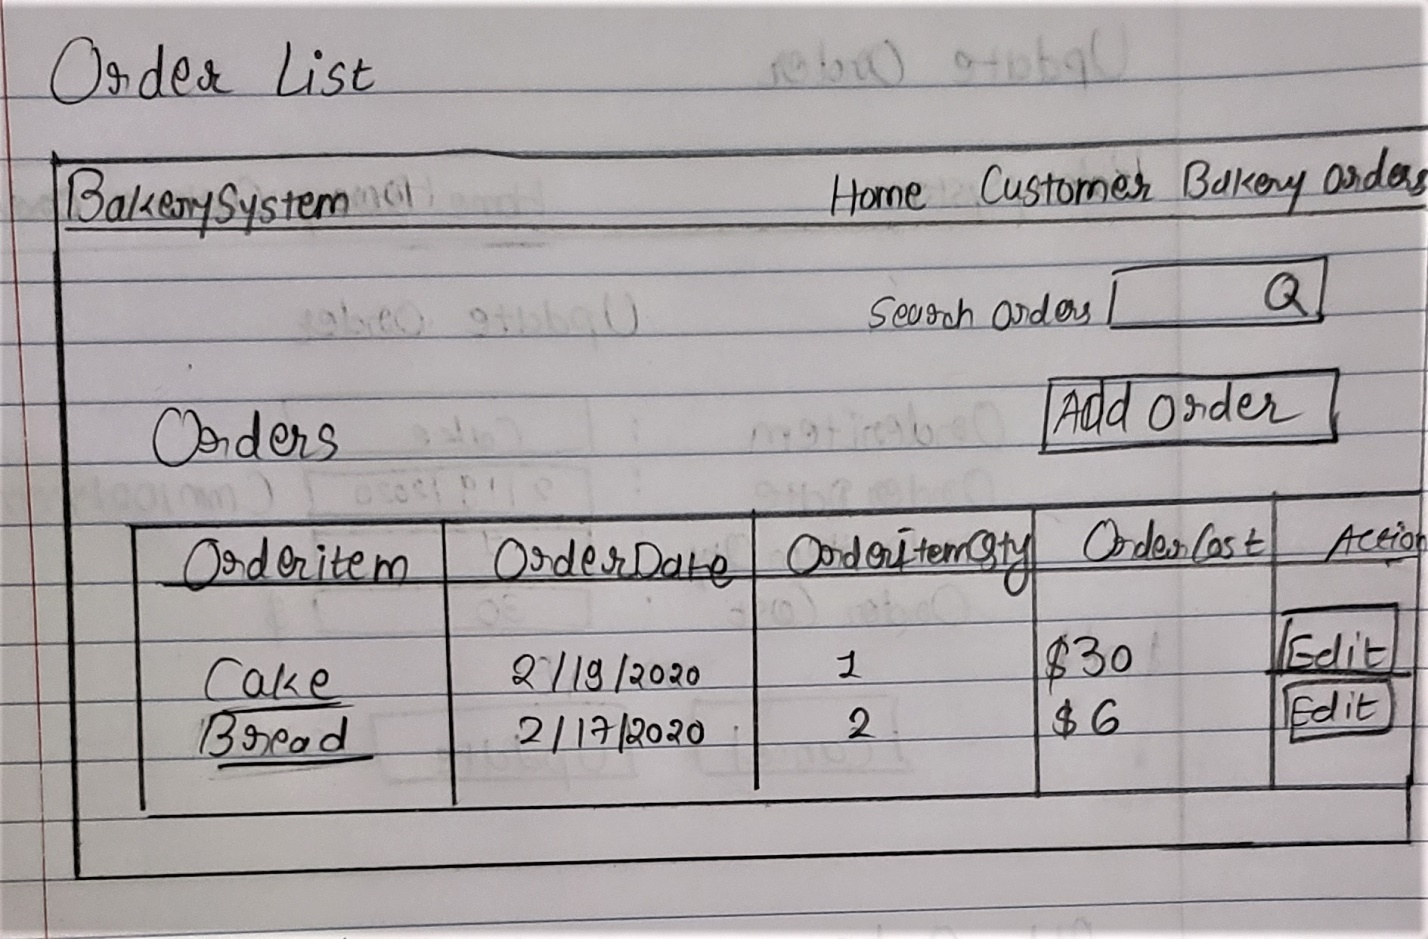 Order List
BakerySystem Home Customer Bakery orders
Search orders Q
Orders Add order
Orderitem OrderDate OrderitemQty OrderCost Action
Cake 2/19/2020 1 $30 Edit
Bread 2/17/2020 2 $6 Edit